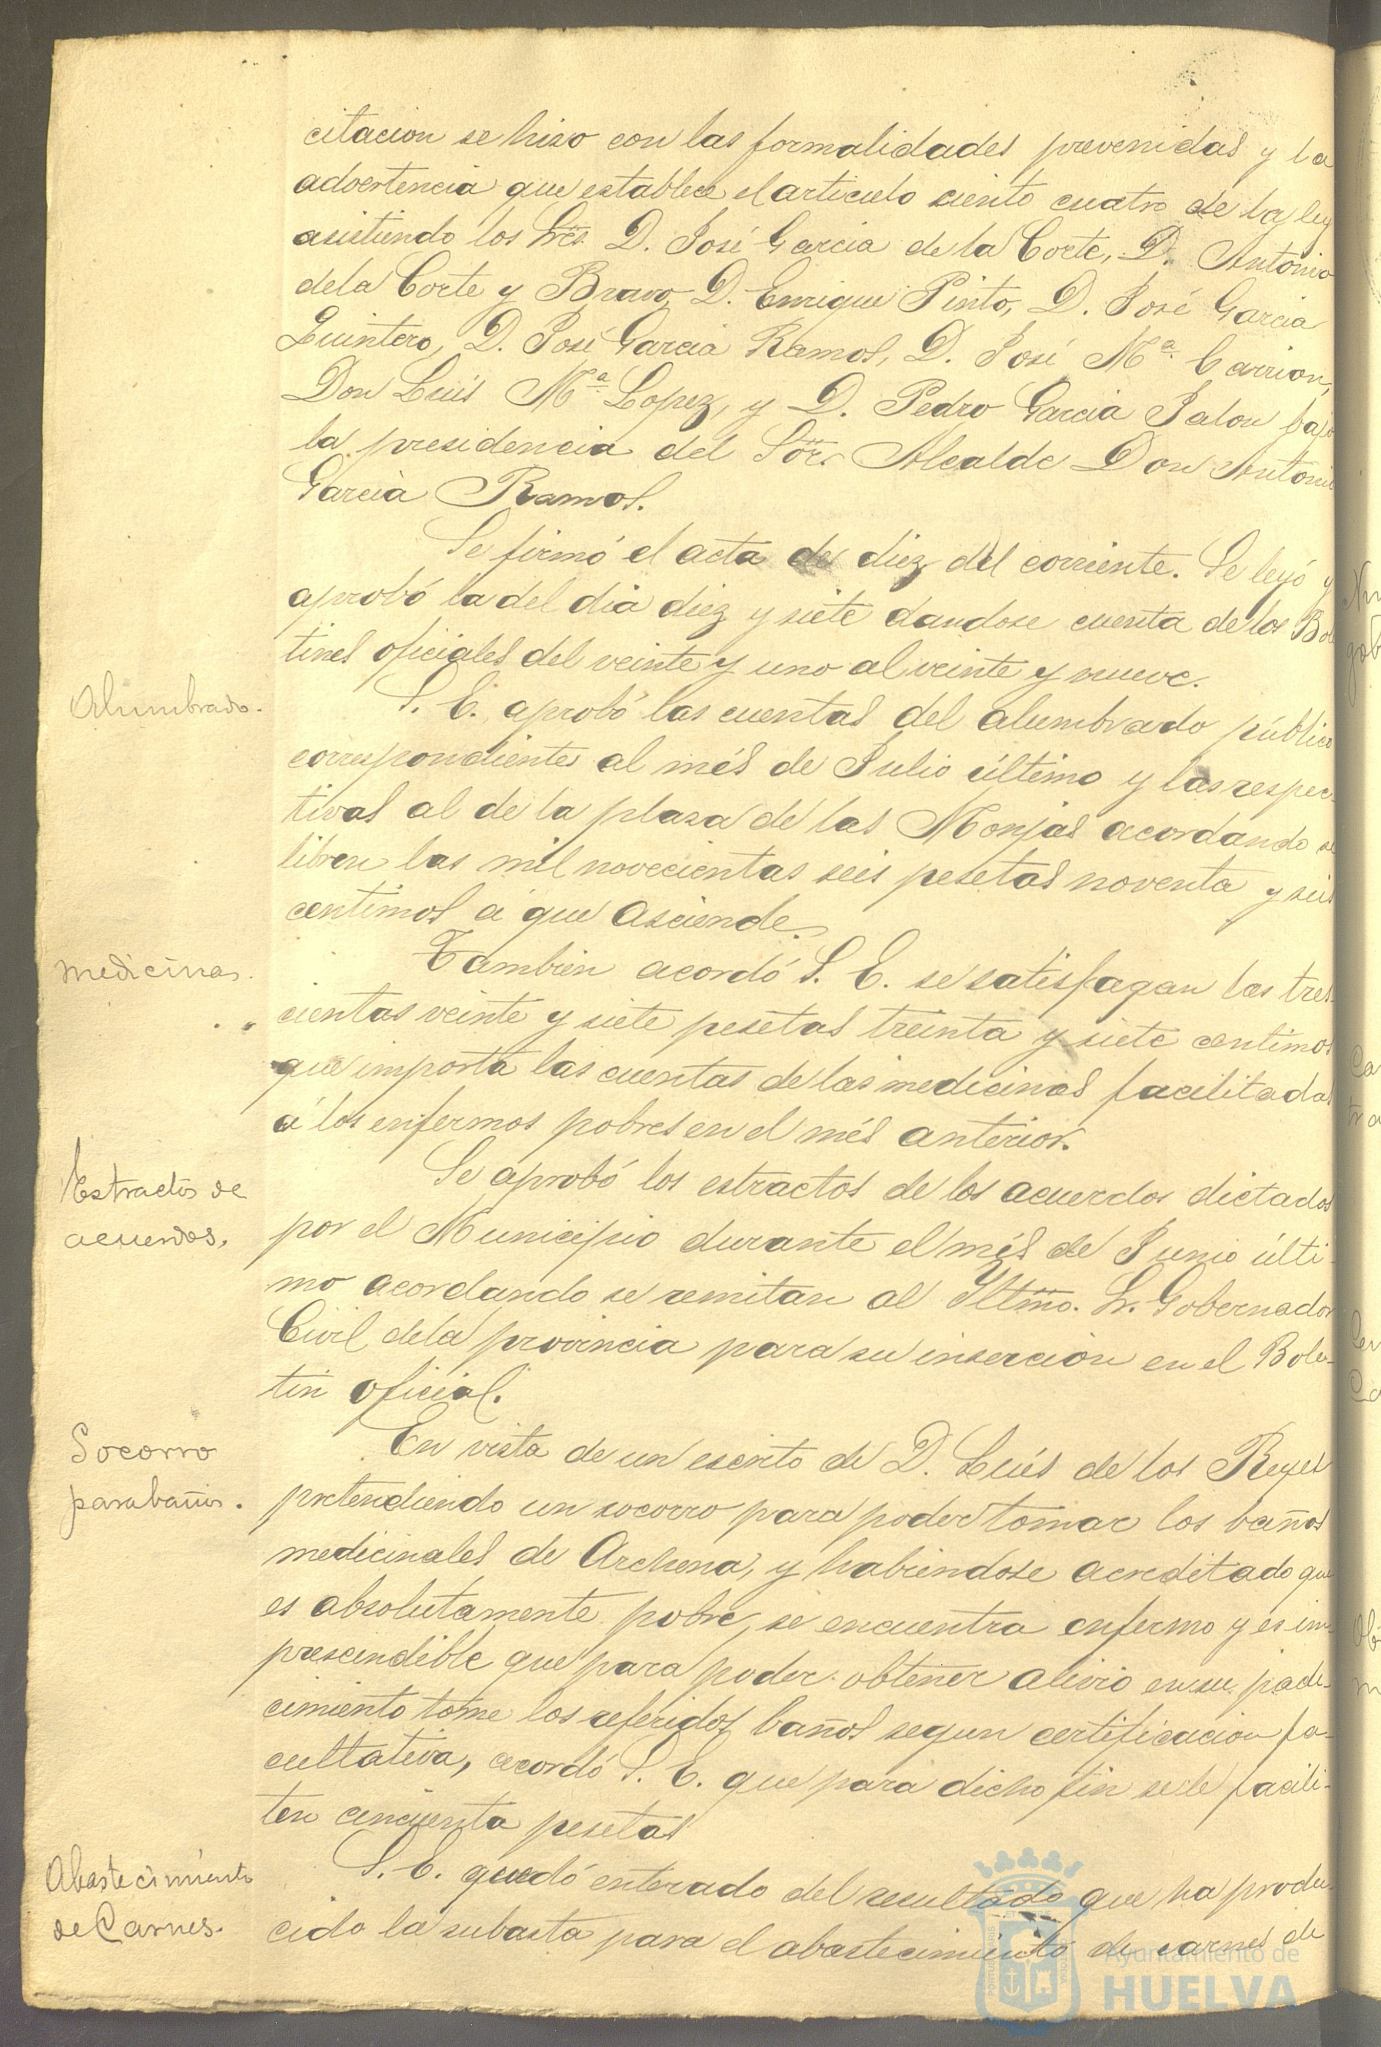 citacion se hizo con las formalidades prevenidas y la
advertencia que establece el articulo ciento cuatro de la ley
asistiendo los Sres. D. José Garcia de la Corte, D. Antonio
de la Corte y Bravo, D. Enrique Pinto, D. José Garcia
Quintero, D. José Garcia Ramos, D. José Mª Carrion,
Don Luis Mª Lopez, y D. Pedro Garcia Jalon bajo
la presidencia del Sor. Alcalde Don Antonio
Garcia Ramos.
Se firmó el acta de diez del corriente. Se leyó y
aprobó la del dia diez y siete dandose cuenta de los Bole
tines oficiales del veinte y uno al veinte y nueve.
Alumbrado.
S. E. aprobó las cuentas del alumbrado público
correspondientes al més de Julio último y las respec-
tivas al de la plaza de las Monjas acordando se
libren las mil novecientas seis pesetas noventa y seis
centimos á que asciende.
Medicinas.
Tambien acordó S. E. se satisfagan las tres-
cientas veinte y siete pesetas treinta y siete centimos
que importa las cuentas de las medicinas facilitadas
á los enfermos pobres en el més anterior.
Estractos de
acuerdos.
Se aprobó los estractos de los acuerdos dictados
por el Municipio durante el més de Junio últi-
mo acordando se remitan al Iltmo. Sr. Gobernador
Civil de la provincia para su insercion en el Bole-
tin oficial.
Socorro
para baños.
En vista de un escrito de D. Luis de los Reyes
pretendiendo un socorro para poder tomar los baños
medicinales de Archena, y habiendose acreditado que
es absolutamente pobre, se encuentra enfermo y es im
prescindible que para poder obtener alivio en su pade-
cimiento tome los referidos baños segun certificacion fa-
cultativa, acordó S. E. que para dicho fin se le facili-
ten cincuenta pesetas
Abastecimiento
de Carnes.
S. E. quedó enterado del resultado que ha produ-
cido la subasta para el abastecimiento de carnes de
Ayuntamiento de
HUELVA